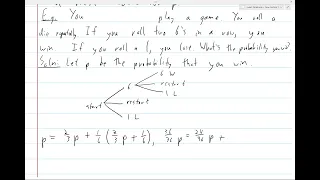 Eg: You play a game. You roll a
die repeatedly. If you roll two 6's in a row, you
win. If you roll a 1, you lose. What's the probability you win?
Soln: Let p be the probability that you win.
6 W
6 restart
1 L
start restart
1 L
p = 2/3 p + 1/6 (2/3 p + 1/6), 36/36 p = 24/36 p +